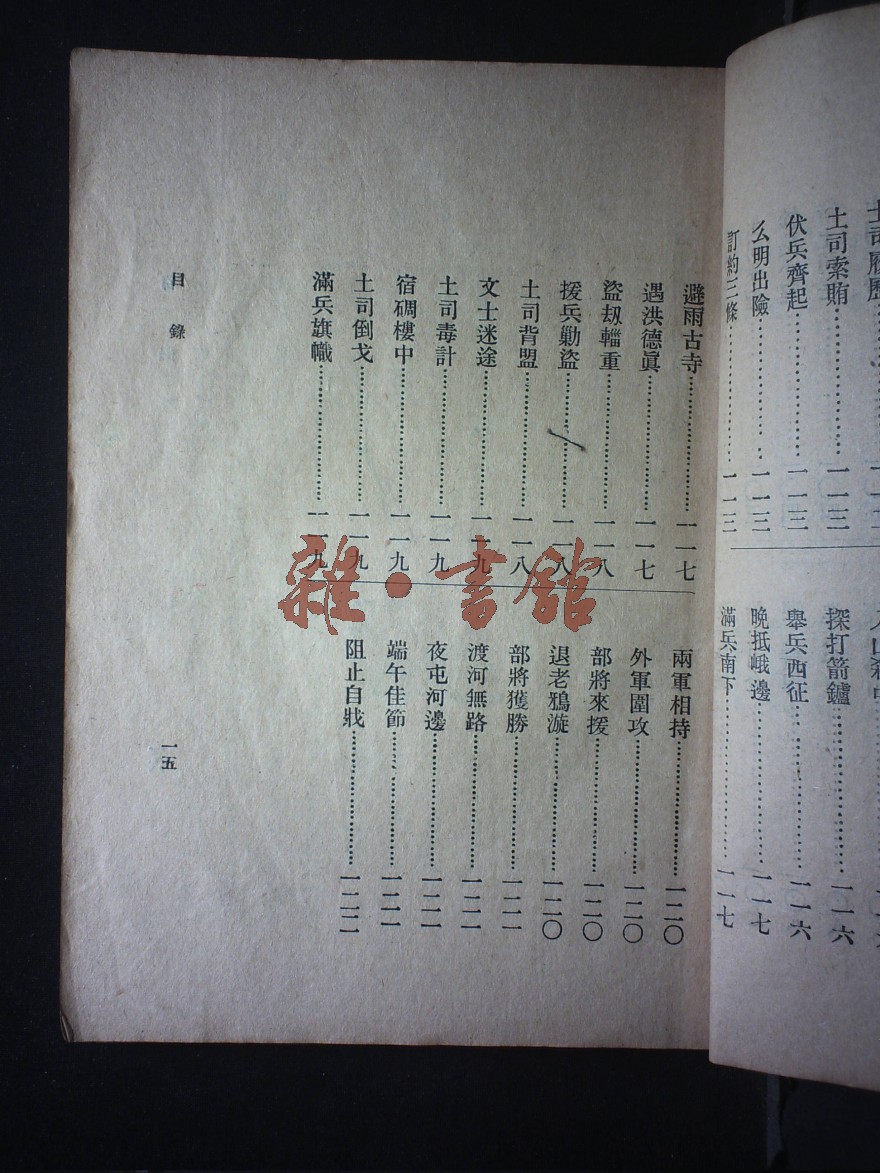 土司索賄……一一三
伏兵齊起……一一三
么明出險……一一三
訂約三條……一一三
探打箭鑪……一一六
舉兵西征……一一六
晚抵峨邊……一一七
滿兵南下……一一七
避雨古寺……一一七
遇洪德眞……一一七
盜刼輜重……一一八
援兵勦盜……一一八
土司背盟……一一八
文士迷途……一一九
土司毒計……一一九
宿碉樓中……一一九
土司倒戈……一一九
滿兵旗幟……一一九
兩軍相持……一二〇
外軍圍攻……一二〇
部將來援……一二〇
退老鴉漩……一二〇
部將獲勝……一二一
渡河無路……一二一
夜屯河邊……一二一
端午佳節……一二一
阻止自戕……一二二
目錄
一五
雜·書館